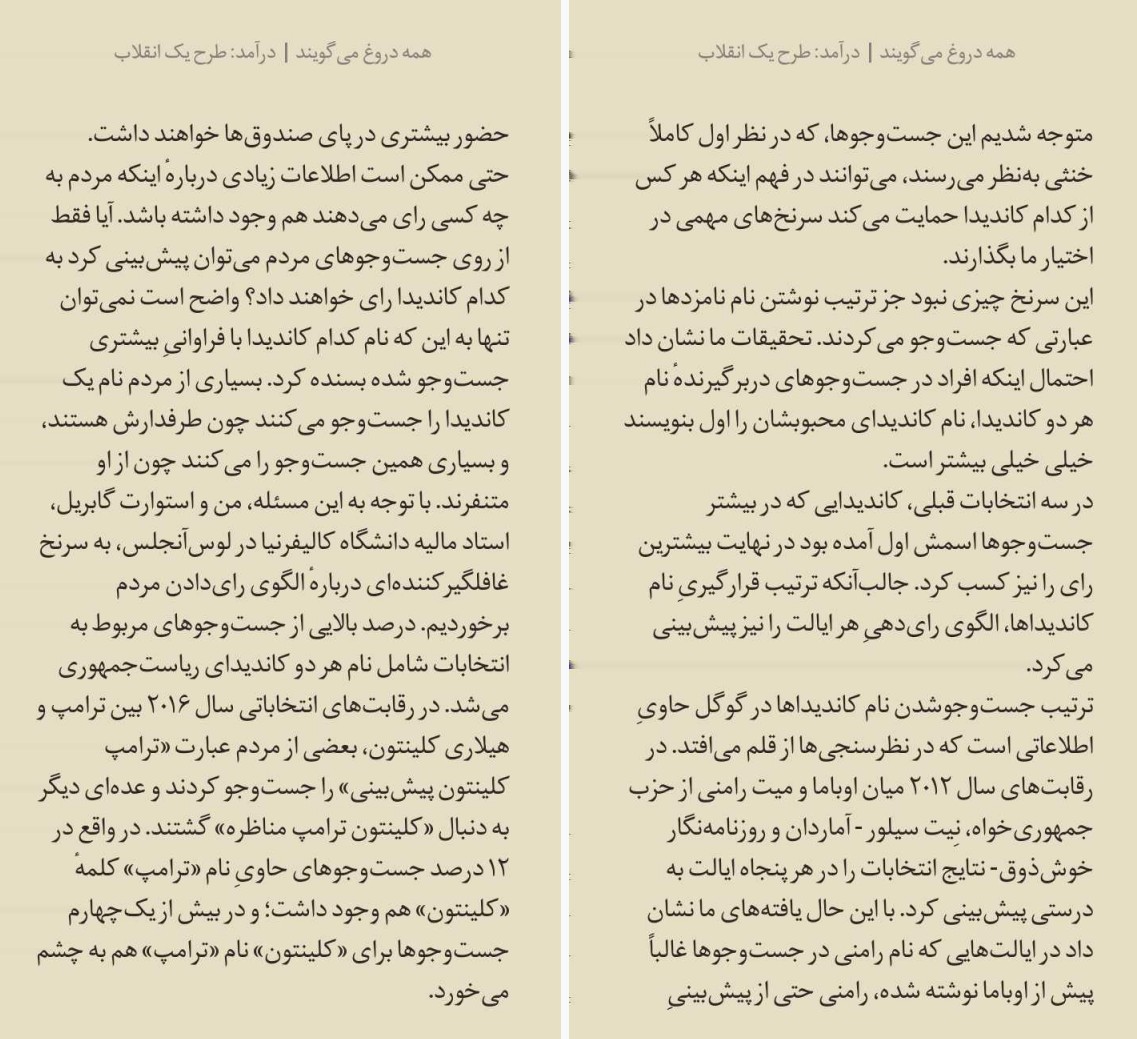 همه دروغ می‌گویند | درآمد: طرح یک انقلاب
حضور بیشتری در پای صندوق‌ها خواهند داشت.
حتی ممکن است اطلاعات زیادی دربارهٔ اینکه مردم به
چه کسی رای می‌دهند هم وجود داشته باشد. آیا فقط
از روی جست‌وجوهای مردم می‌توان پیش‌بینی کرد به
کدام کاندیدا رای خواهند داد؟ واضح است نمی‌توان
تنها به این که نام کدام کاندیدا با فراوانیِ بیشتری
جست‌وجو شده بسنده کرد. بسیاری از مردم نام یک
کاندیدا را جست‌وجو می‌کنند چون طرفدارش هستند،
و بسیاری همین جست‌وجو را می‌کنند چون از او
متنفرند. با توجه به این مسئله، من و استوارت گابریل،
استاد مالیه دانشگاه کالیفرنیا در لوس‌آنجلس، به سرنخ
غافلگیرکننده‌ای دربارهٔ الگوی رای‌دادن مردم
برخوردیم. درصد بالایی از جست‌وجوهای مربوط به
انتخابات شامل نام هر دو کاندیدای ریاست‌جمهوری
می‌شد. در رقابت‌های انتخاباتی سال ۲۰۱۶ بین ترامپ و
هیلاری کلینتون، بعضی از مردم عبارت «ترامپ
کلینتون پیش‌بینی» را جست‌وجو کردند و عده‌ای دیگر
به دنبال «کلینتون ترامپ مناظره» گشتند. در واقع در
۱۲ درصد جست‌وجوهای حاویِ نام «ترامپ» کلمهٔ
«کلینتون» هم وجود داشت؛ و در بیش از یک‌چهارم
جست‌وجوها برای «کلینتون» نام «ترامپ» هم به چشم
می‌خورد.
همه دروغ می‌گویند | درآمد: طرح یک انقلاب
متوجه شدیم این جست‌وجوها، که در نظر اول کاملاً
خنثی به‌نظر می‌رسند، می‌توانند در فهم اینکه هر کس
از کدام کاندیدا حمایت می‌کند سرنخ‌های مهمی در
اختیار ما بگذارند.
این سرنخ چیزی نبود جز ترتیب نوشتن نام نامزدها در
عبارتی که جست‌وجو می‌کردند. تحقیقات ما نشان داد
احتمال اینکه افراد در جست‌وجوهای دربرگیرندهٔ نام
هر دو کاندیدا، نام کاندیدای محبوبشان را اول بنویسند
خیلی خیلی بیشتر است.
در سه انتخابات قبلی، کاندیدایی که در بیشتر
جست‌وجوها اسمش اول آمده بود در نهایت بیشترین
رای را نیز کسب کرد. جالب‌آنکه ترتیب قرارگیریِ نام
کاندیداها، الگوی رای‌دهیِ هر ایالت را نیز پیش‌بینی
می‌کرد.
ترتیب جست‌وجوشدن نام کاندیداها در گوگل حاویِ
اطلاعاتی است که در نظرسنجی‌ها از قلم می‌افتد. در
رقابت‌های سال ۲۰۱۲ میان اوباما و میت رامنی از حزب
جمهوری‌خواه، نِیت سیلور - آماردان و روزنامه‌نگار
خوش‌ذوق- نتایج انتخابات را در هر پنجاه ایالت به
درستی پیش‌بینی کرد. با این حال یافته‌های ما نشان
داد در ایالت‌هایی که نام رامنی در جست‌وجوها غالباً
پیش از اوباما نوشته شده، رامنی حتی از پیش‌بینیِ